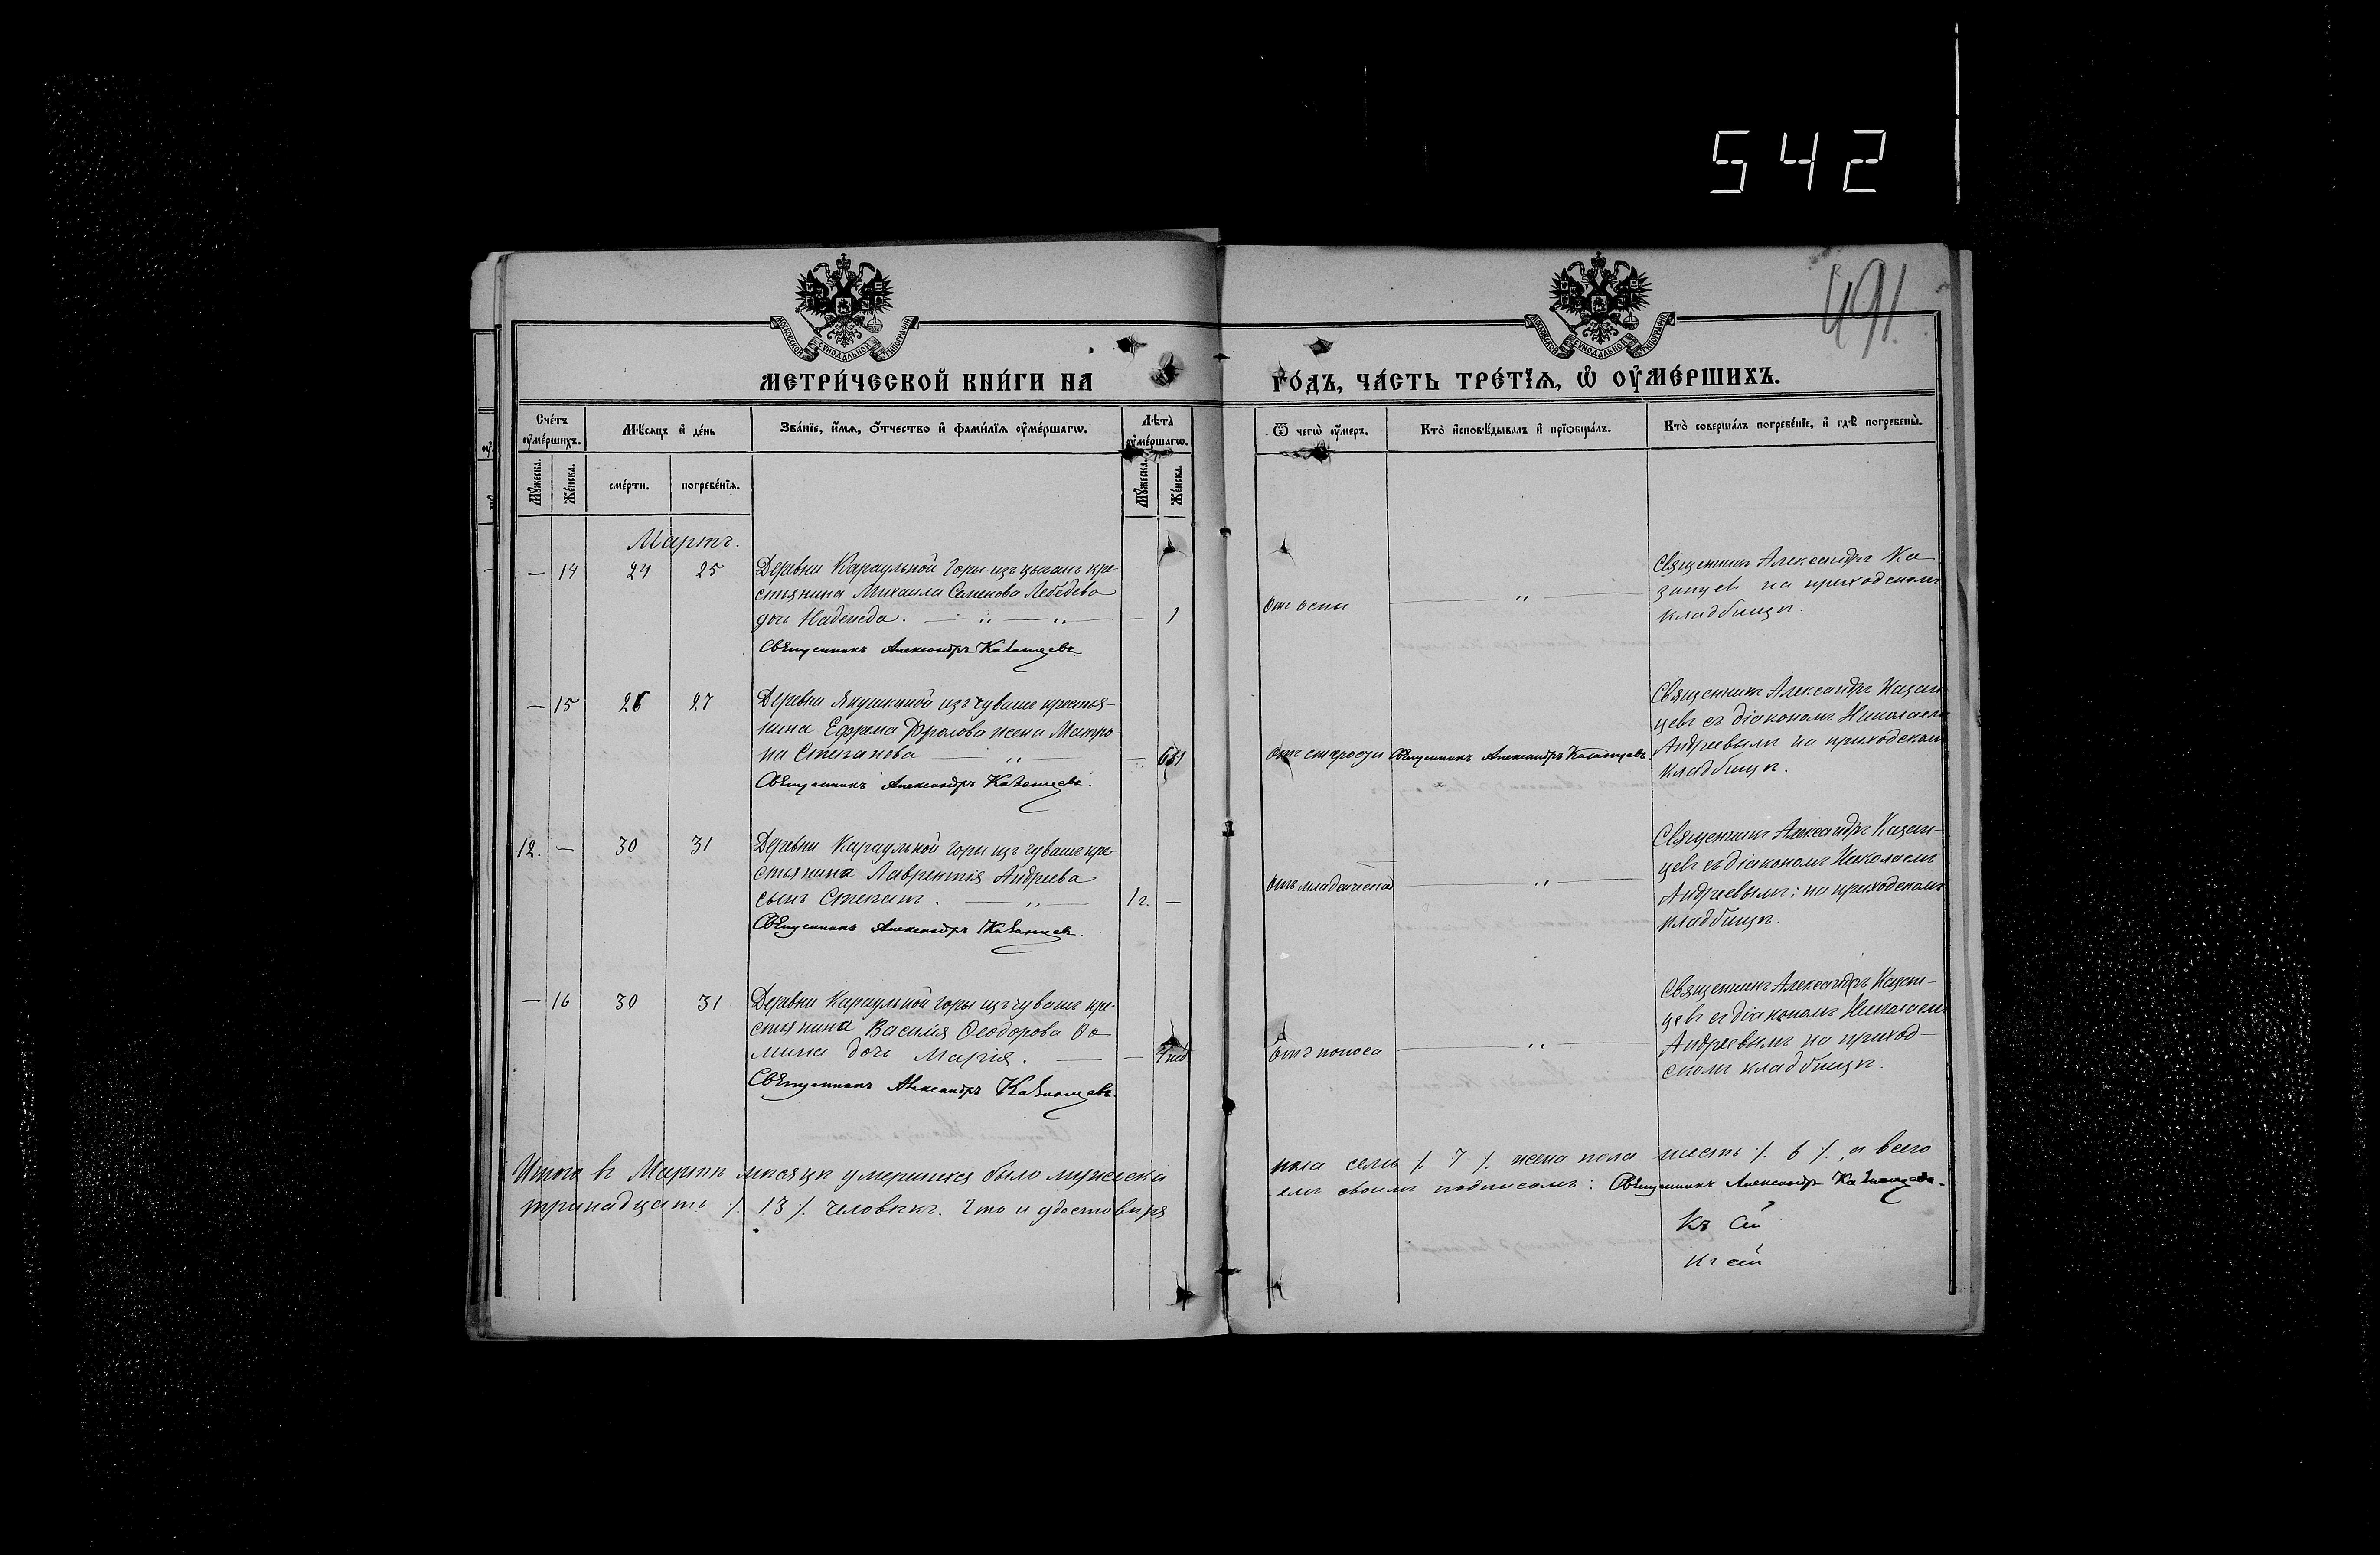 542
491.
МОСКОВСКОЙ СѴНОДАЛЬНОЙ ТИПОГРАФІИ
МОСКОВСКОЙ СѴНОДАЛЬНОЙ ТИПОГРАФІИ
МЕТРИ́ЧЕСКОЙ КНИ́ГИ НА
ГО́ДЪ, ЧА́СТЬ ТРЕ́ТЇѦ, Ѡ҆ ОУ҆МЕ́РШИХЪ.
Сче́тъ оу҆ме́ршихъ.
Мѣ́сѧцъ и҆ де́нь
Зва́нїе, и҆́мѧ, ѻ҆́тчество и҆ фами́лїѧ оу҆ме́ршагѡ.
Лѣ́та оу҆ме́ршагѡ.
Ѿ чегѡ̀ оу҆́меръ.
Кто̀ и҆сповѣ́дывалъ и҆ прїѡбща́лъ.
Кто̀ соверша́лъ погребе́нїе, и҆ гдѣ̀ погребены̀.
Мꙋ́жеска.
Же́нска.
сме́рти.
погребе́нїѧ.
Мꙋ́жеска.
Же́нска.
Мартъ.
— 14 24 25
Деревни Караульной Горы изъ цыганъ кре-
стьянина Михаила Семенова Лебедева
дочь Надежда. — 1
Священникъ Александръ Казанцевъ
отъ оспы
Священникъ Александръ Ка-
занцевъ на приходскомъ
кладбищѣ.
— 15 26 27
Деревни Якушкиной изъ чувашъ крестья-
нина Ефрема Фролова жена Матро-
на Степанова —
Священникъ Александръ Казанцевъ.
отъ старости
Священникъ Александръ Казанцевъ
Священникъ Александръ Казан
цевъ съ діакономъ Николаемъ
Андреевымъ на приходскомъ
кладбищѣ.
12. — 30 31
Деревни Караульной горы изъ чувашъ кре-
стьянина Лаврентія Андреева
сынъ Степанъ. 1 г. —
Священникъ Александръ Казанцевъ.
отъ младенческой
Священникъ Александръ Казан-
цевъ съ діакономъ Николаемъ
Андреевымъ: на приходскомъ
кладбищѣ.
— 16 30 31
Деревни Караульной горы изъ чувашъ кре-
стьянина Василія Ѳеодорова Ѳо-
мина дочь Марія. —
Священникъ Александръ Казанцевъ.
отъ поноса
Священникъ Александръ Казан-
цевъ съ діакономъ Николаемъ
Андреевымъ на приход-
скомъ кладбищѣ.
Итого въ Мартѣ мѣсяцѣ умершихъ было мужеска
пола семь ⁒ 7 ⁒ женска пола шесть ⁒ 6 ⁒, а всего
тринадцать ⁒ 13 ⁒ человѣкъ. Что и удостовѣря
емъ своимъ подписомъ: Священникъ Александръ Казанцевъ.